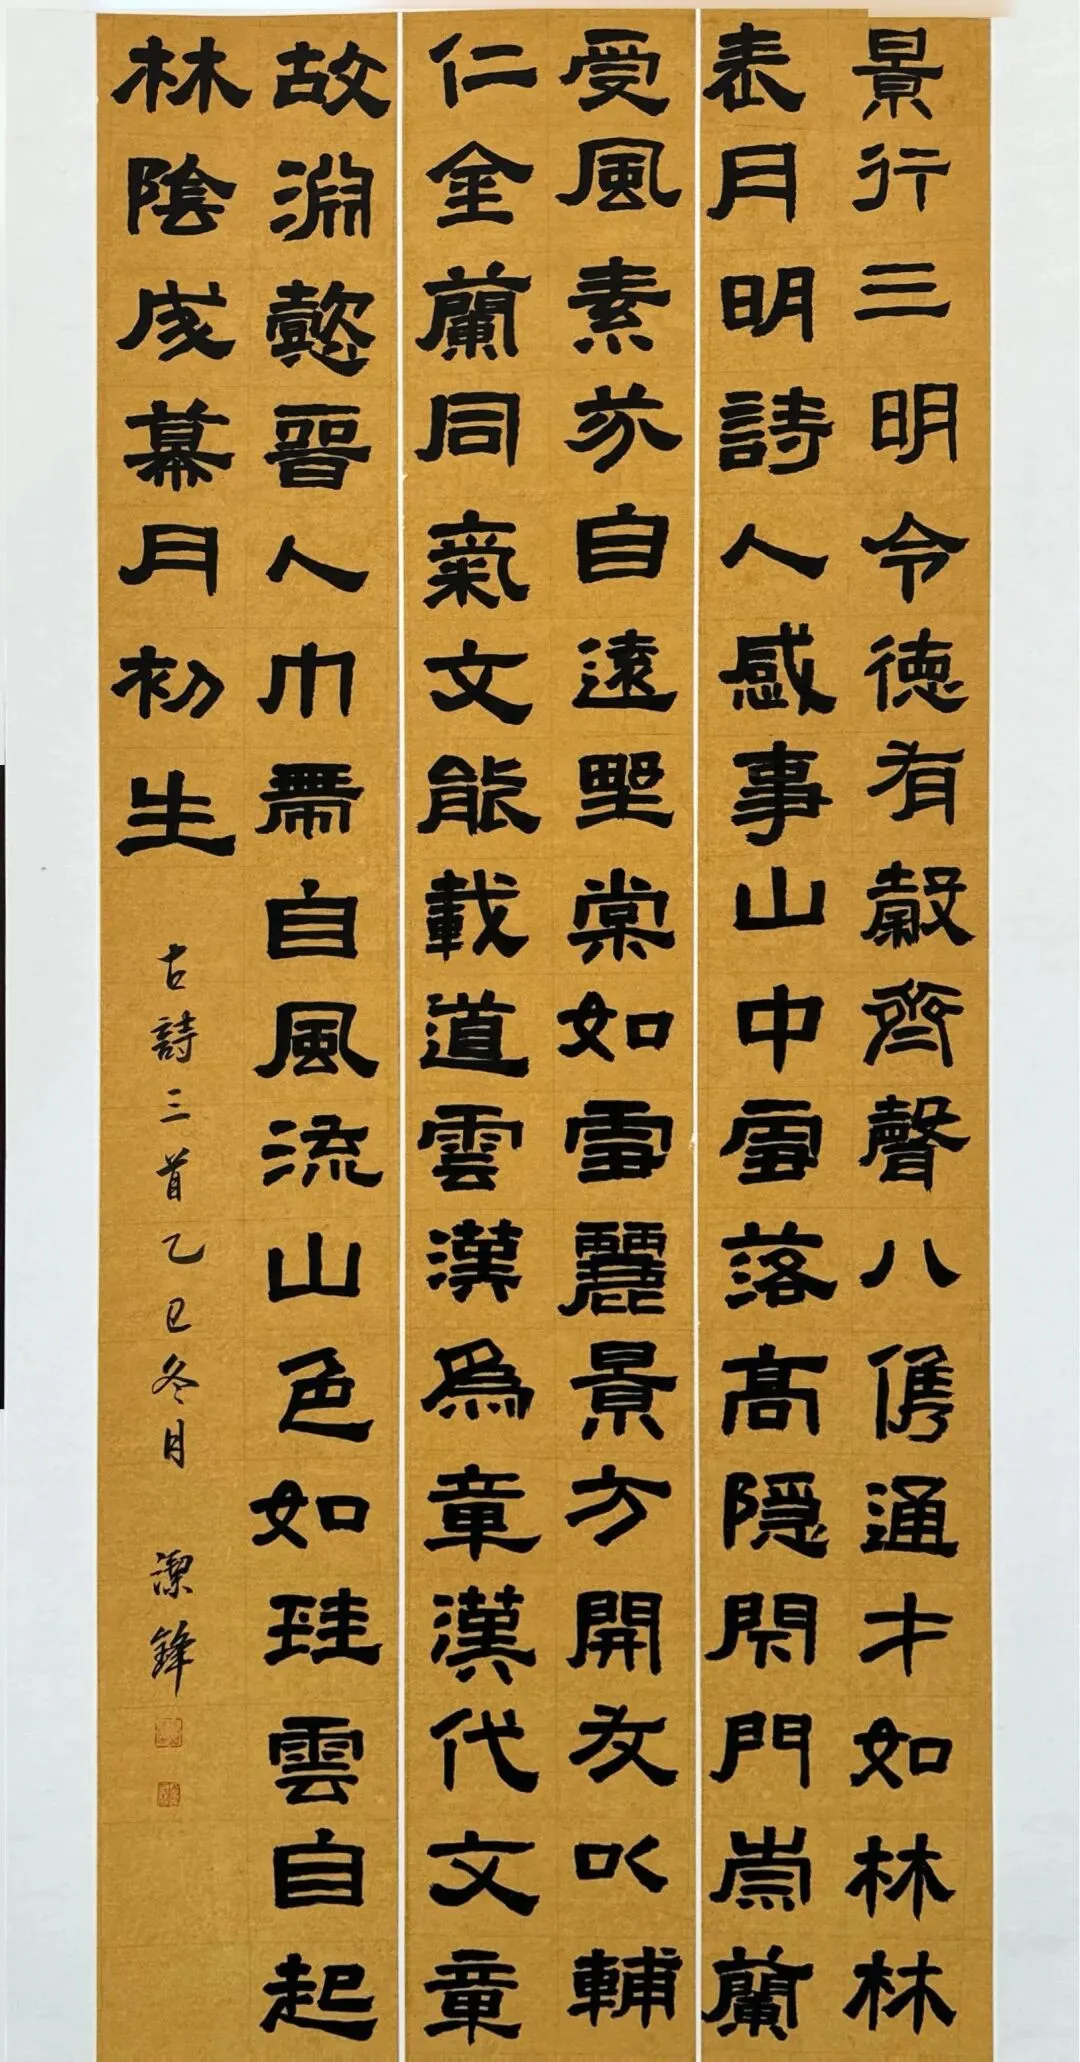 景行三明令德有穀齊聲八儁通才如林林
表月明詩人感事山中雪落高隱閉門崇蘭
受風素芬自遠野棠如雪麗景方開友以輔
仁金蘭同氣文能載道雲漢爲章漢代文章
故淵懿晉人巾帶自風流山色如珪雲自起
林陰成幕月初生
古詩三首乙巳冬月 潔鋒